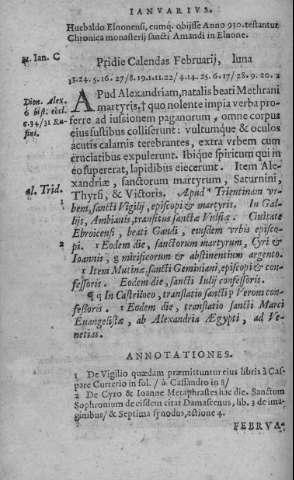 IANVARIVS.
Hucbaldo Elnonensi, cumq́. obijsse Anno 930. testantur
Chronica monasterij sancti Amandi in Elnone.
Pridie Calendas Februarij, luna
APud Alexandriam, natalis beati Methrani
martyris, † quo nolente impia verba pro-
ferre ad iussionem paganorum, omne corpus
eius fustibus colliserunt: vultumque & oculos
acutis calamis terebrantes, extra vrbem cum
cruciatibus expulerunt. Ibique spiritum qui in
eo supererat, lapidibus eiecerunt. Item Ale-
xandriæ, sanctorum martyrum, Saturnini,
Thyrsi, & Victoris. Apud * Trientinam vr-
bem, sancti Vigilij, episcopi & martyris. In Gal-
lijs, Ambianis, transitus sanctæ Vulsiæ. Ciuitate
Ebroicensi, beati Gaudi, eiusdem vrbis episco-
pi. Eodem die, sanctorum martyrum, Cyri &
Ioannis, mirificorum & abstinentium argento.
Item Mutinæ, sancti Geminiani, episcopi & con-
fessoris. Eodem die, sancti Iulij confessoris.
In Castriloco, translatio sancti Veroni con-
fessoris. Eodem die, translatio sancti Marci
Euangelistæ, ab Alexandria Ægypti, ad Ve-
netias.
ANNOTATIONES.
1 De Vigilio quædam præmittuntur eius libris à Cas-
pare Currerio in fol. / à Cassandro in 8/
2 De Cyro & Ioanne Metaphrastes hac die. Sanctum
Sophronium de eisdem citat Damascenus, lib. 3 de ima-
ginibus/ & Septima synodus, actione 4.
FEBRVA-